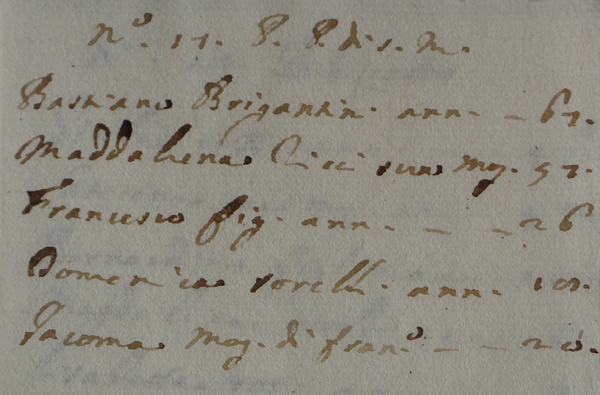 nº. 17. P. P. di s. M.
Bastiano Brigantin. ann. _ 67.
Maddalena Cicci sua mog. 57.
Francesco fig. ann. _ _ 26
Domenica sorell. ann. 10.
Jacoma mog. di franº _ _ 20.